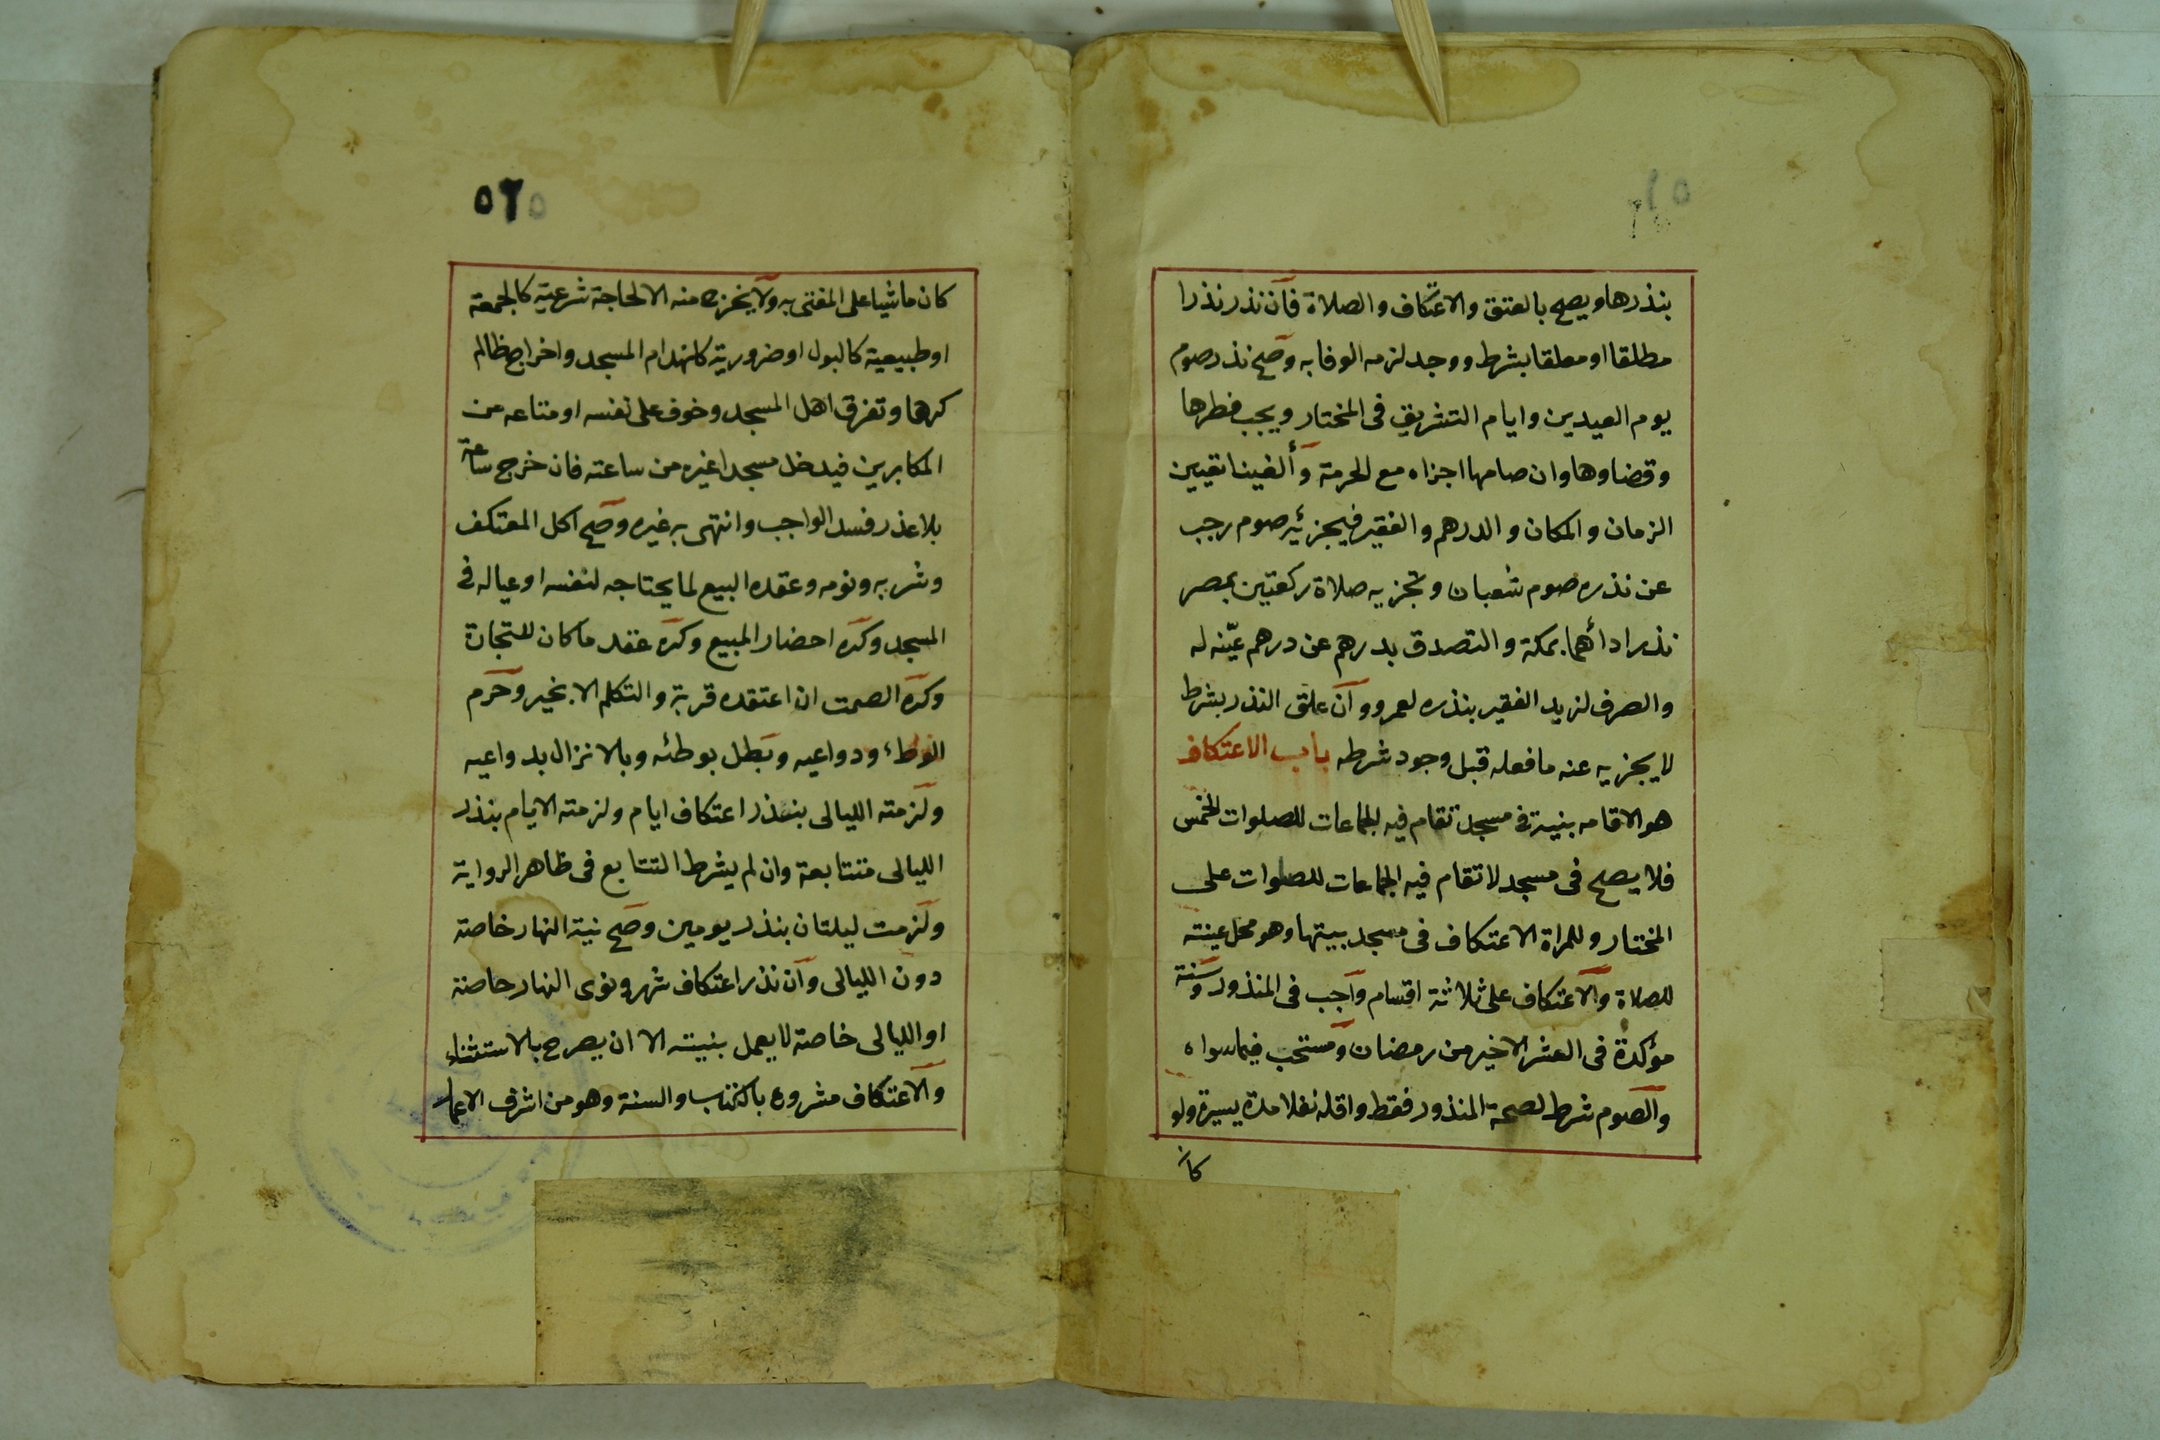 بنذرها ويصح بالعتق والاعتكاف والصلاة فان نذر نذرا
مطلقا او معلقا بشرط ووجد لزمه الوفا به وصح نذر صوم
يوم العيدين وايام التشريق فى المختار ويجب فطرها
وقضاوها وان صامها اجزاه مع الحرمة وألغينا تعيين
الزمان والمكان والدرهم والفقير فيجزئه صوم رجب
عن نذره صوم شعبان وتجزيه صلاة ركعتين بمصر
نذر ادائهما بمكة والتصدق بدرهم عن درهم عيّنه له
والصرف لزيد الفقير بنذره لعمرو وان علق النذر بشرط
لا يجزيه عنه ما فعله قبل وجود شرطه باب الاعتكاف
هو الاقامه بنية فى مسجد تقام فيه الجماعات للصلوات الخمس
فلا يصح فى مسجد لا تقام فيه الجماعات للصلوات على
المختار وللمراة الاعتكاف فى مسجد بيتها وهو محل عينته
للصلاة والاعتكاف على ثلاثة اقسام واجب فى المنذور وسنة
مؤكدة فى العشر الاخير من رمضان ومستحب فيما سواه
والصوم شرط لصحة المنذور فقط واقله نفلا مدة يسيرة ولو
كان
٥٢
كان ماشيا على المفتى به ولا يخرج منه الا لحاجة شرعية كالجمعة
او طبيعية كالبول او ضرورية كانهدام المسجد واخراج ظالم
كرها وتفرق اهل المسجد وخوف على نفسه او متاعه من
المكابرين فيدخل مسجدا غيره من ساعته فان خرج ساعة
بلا عذر فسد الواجب وانتهى به غيره وصح اكل المعتكف
وشربه ونومه وعقده البيع لما يحتاجه لنفسه او عياله فى
المسجد وكره احضار المبيع وكره عقد ما كان للتجارة
وكره الصمت ان اعتقده قربة والتكلم الا بخير وحرم
الوطء ودواعيه وبطل بوطئه وبالانزال بدواعيه
ولزمته الليالى بنذر اعتكاف ايام ولزمته الايام بنذر
الليالى متتابعة وان لم يشرط التتابع فى ظاهر الرواية
ولزمت ليلتان بنذر يومين وصح نية النهار خاصة
دون الليالى وان نذر اعتكاف شهر ونوى النهار خاصة
او الليالى خاصة لا يعمل بنيته الا ان يصرح بالاستثناء
والاعتكاف مشروع بالكتاب والسنة وهو من اشرف الاعمال